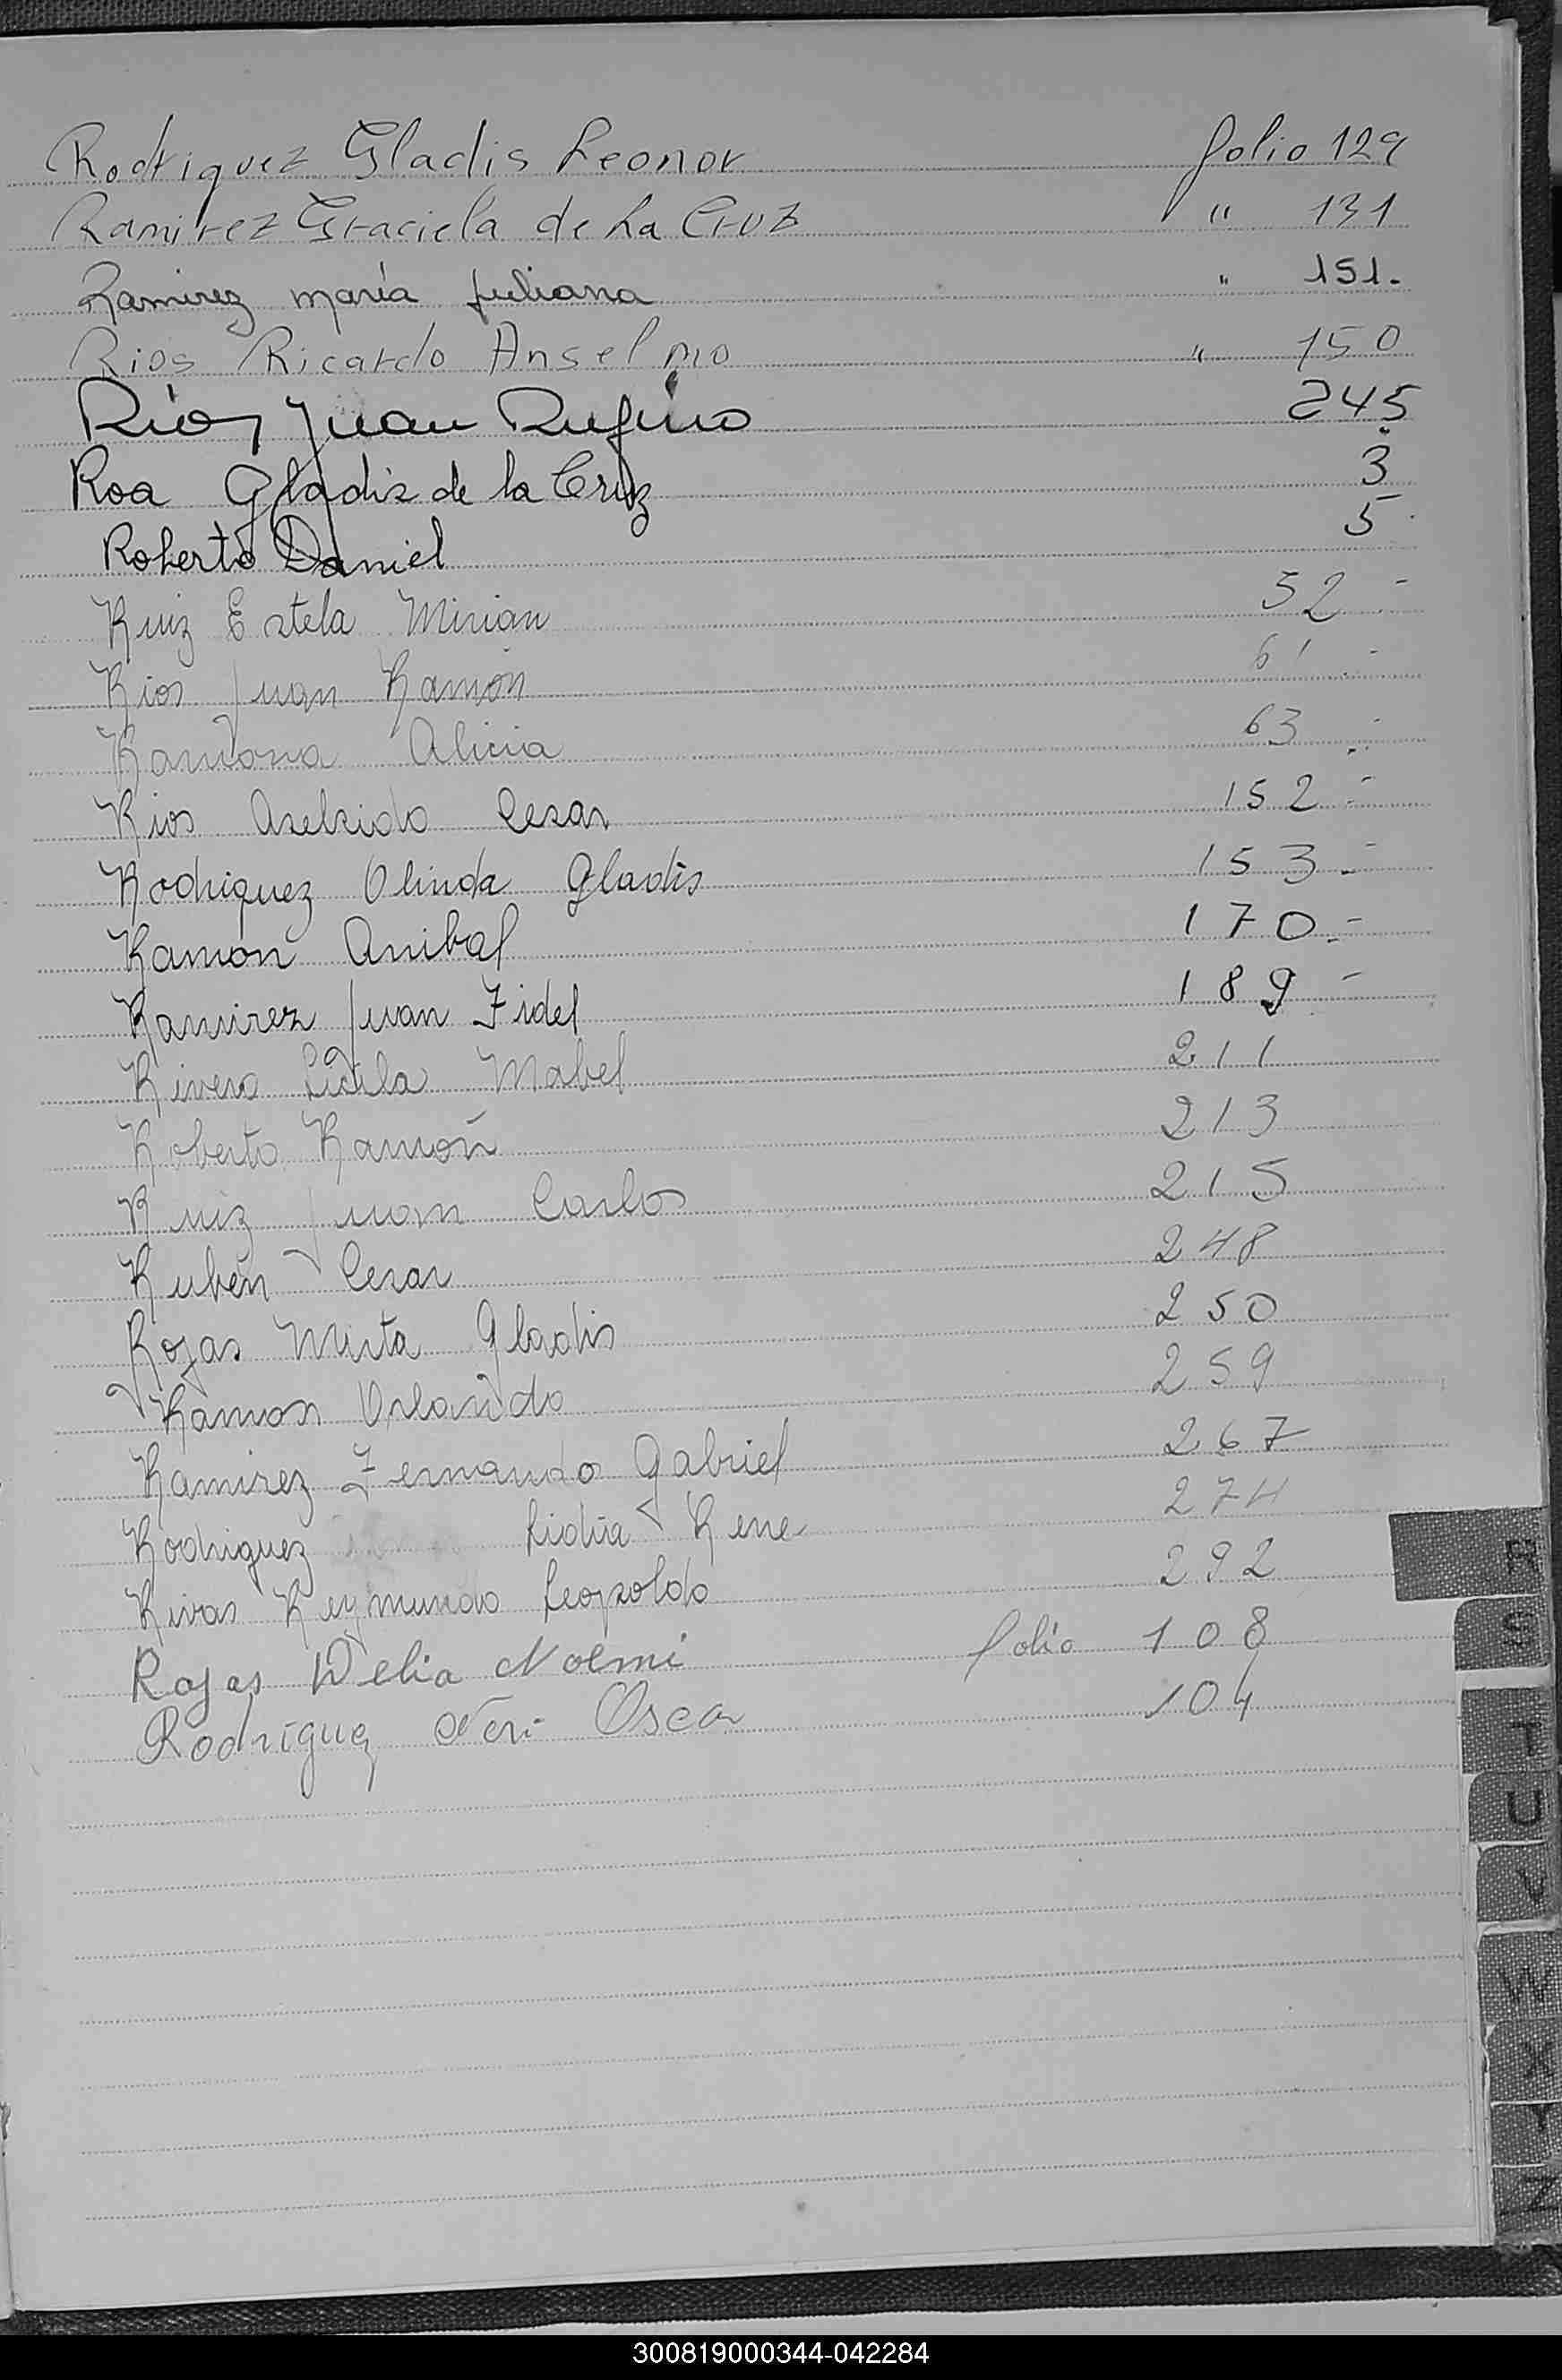 Rodriguez Gladis Leonor folio 129
Ramirez Graciela de La Cruz " 131
Ramirez maría Juliana " 151.
Rios Ricardo Anselmo " 150
Rios Juan Rufino 245
Roa Gladis de la Cruz 3
Roberto Daniel 5
Ruiz Estela Mirian 52 -
Rios Juan Ramón 61 -
Ramona Alicia 63
Rios Cesar 152
Rodriguez Olinda Gladis 153
Ramón Anibal 170
Ramirez Juan Fidel 189 -
Rivero Mabel 211
Roberto Ramón 213
Ruiz Juan Carlos 215
Rubén Cesar 248
Rojas Mirta Gladis 250
Ramon Orlando 259
Ramirez Fernando Gabriel 267
Rodriguez Lidia Rene 274
Rivas Reymundo Leopoldo 292
Rojas Delia Noemi folio 108
Rodríguez Neri Oscar 104
R
S
T
U
V
W
X
Y
Z
300819000344-042284